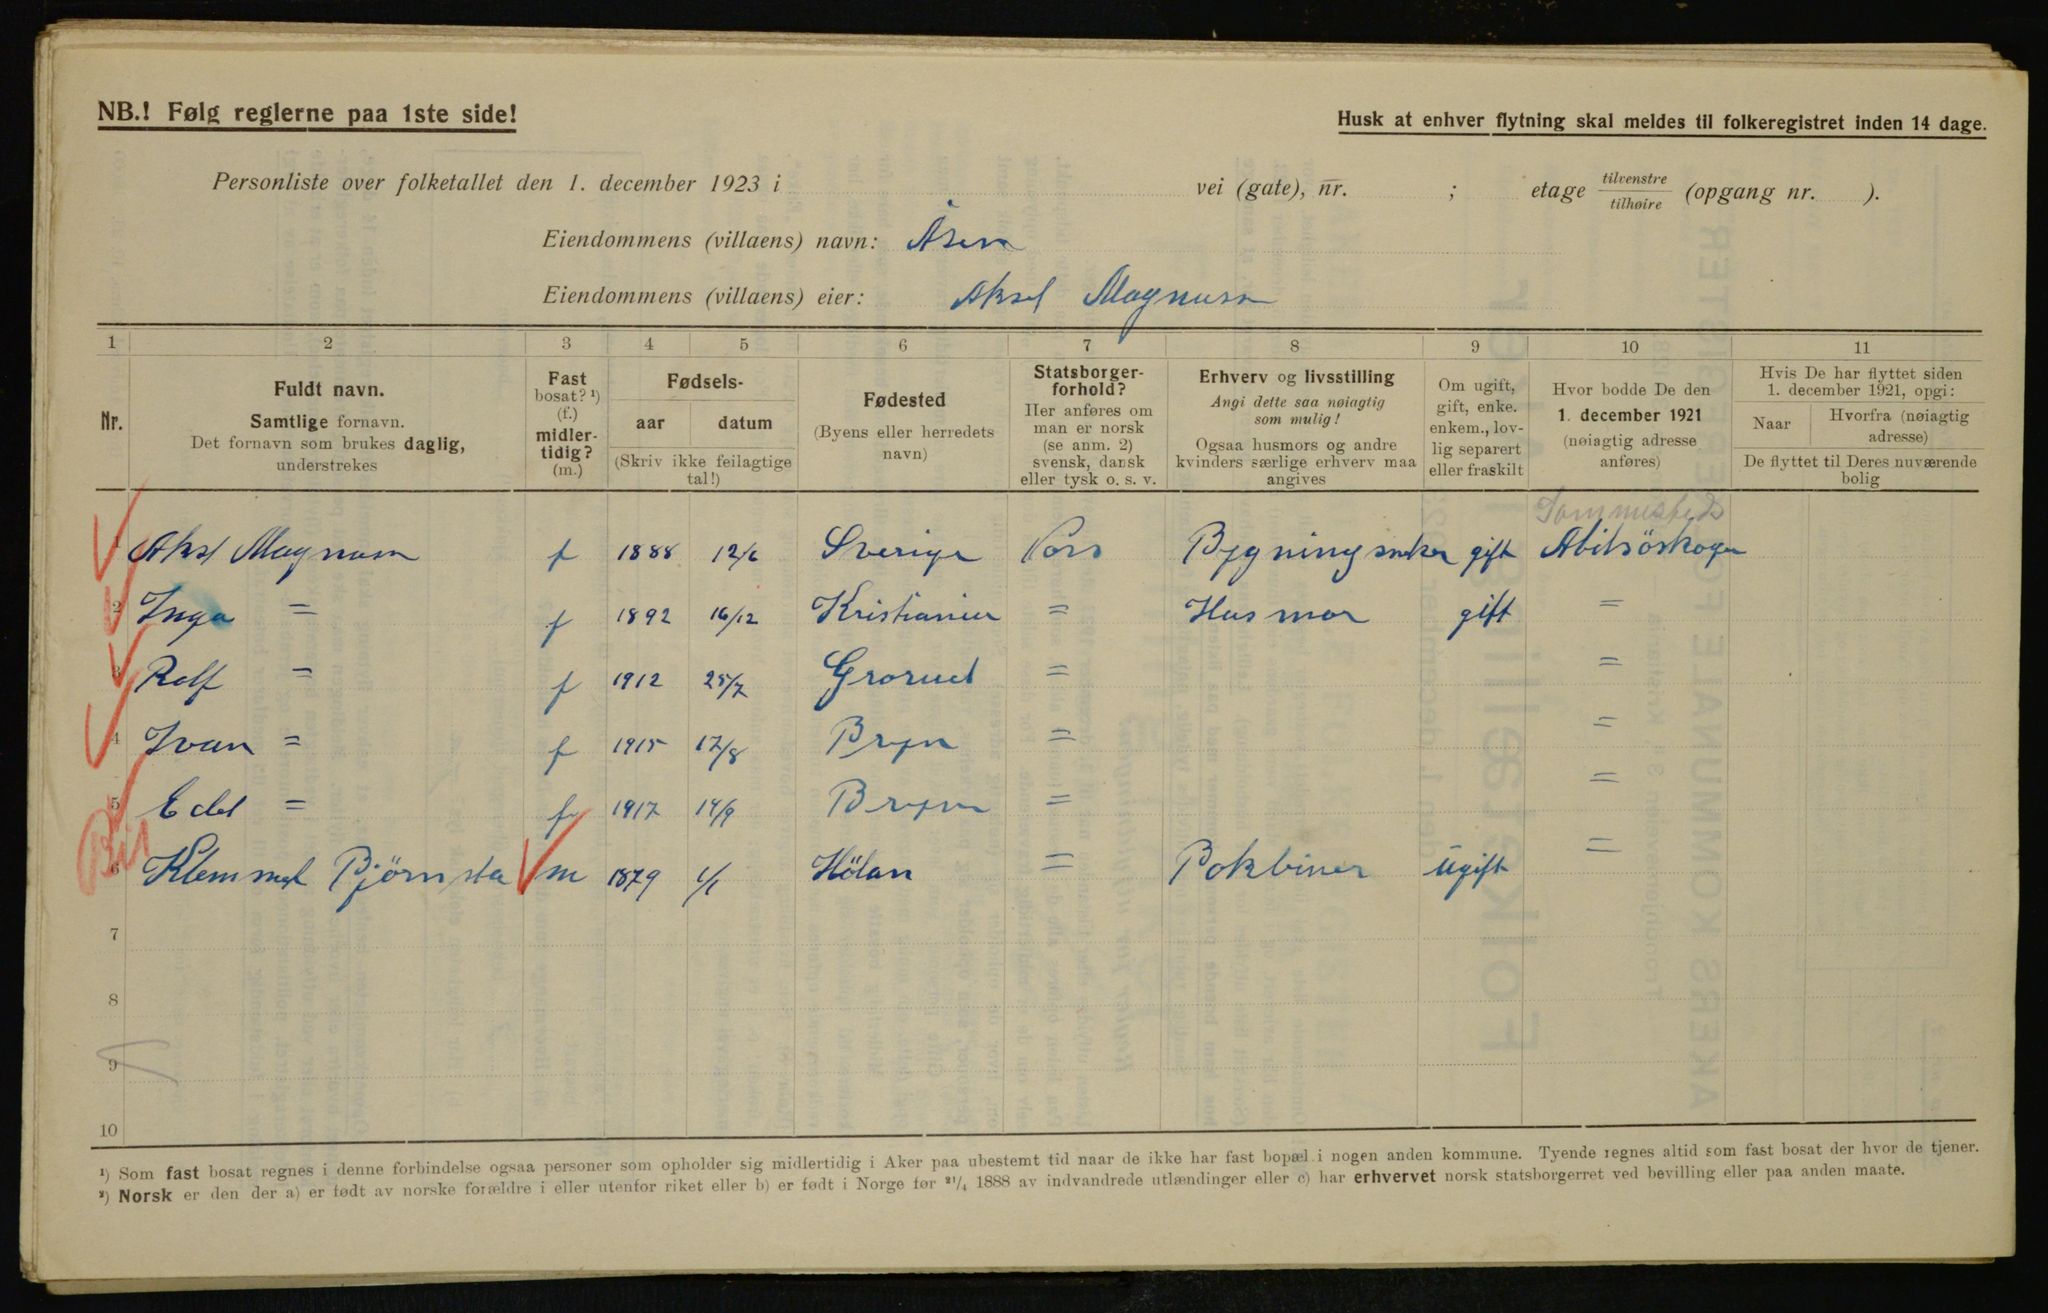 NB.! Følg reglerne paa 1ste side!
Husk at enhver flytning skal meldes til folkeregistret inden 14 dage.
Personliste over folketallet den 1. december 1923 i vei (gate), nr. ; etage tilvenstre / tilhøire (opgang nr. ).
Eiendommens (villaens) navn: Åsen
Eiendommens (villaens) eier: Aksel Magnusn
1 2 3 4 5 6 7 8 9 10 11
Nr.
Fuldt navn.
Samtlige fornavn.
Det fornavn som brukes daglig,
understrekes
Fast
bosat? ¹)
(f.)
midler-
tidig?
(m.)
Fødsels-
aar datum
(Skriv ikke feilagtige
tal!)
Fødested
(Byens eller herredets
navn)
Statsborger-
forhold?
Her anføres om
man er norsk
(se anm. 2)
svensk, dansk
eller tysk o. s. v.
Erhverv og livsstilling
Angi dette saa nøiagtig
som mulig!
Ogsaa husmors og andre
kvinders særlige erhverv maa
angives
Om ugift,
gift, enke.
enkem., lov-
lig separert
eller fraskilt
Hvor bodde De den
1. december 1921
(nøiagtig adresse
anføres)
Hvis De har flyttet siden
1. december 1921, opgi:
Naar Hvorfra (nøiagtig
adresse)
De flyttet til Deres nuværende
bolig
1 Aksl Magnusn f 1888 12/6 Sverige Nors Bygningsneker gift Abilsöskogen
2 Inga = f 1892 16/12 Kristiania = Husmor gift =
3 Rolf = f 1912 25/7 Grorud = =
4 Ivan = f 1915 17/8 Bryn = =
5 Edel = f 1917 14/9 Bryn = =
6 Klemmet Bjørnsta m 1879 1/1 Hölan = Bokbiner Ugift =
7
8
9
10
¹) Som fast bosat regnes i denne forbindelse ogsaa personer som opholder sig midlertidig i Aker paa ubestemt tid naar de ikke har fast bopæl i nogen anden kommune. Tyende regnes altid som fast bosat der hvor de tjener.
²) Norsk er den der a) er født av norske forældre i eller utenfor riket eller b) er født i Norge før 21/4 1888 av indvandrede utlændinger eller c) har erhvervet norsk statsborgerret ved bevilling eller paa anden maate.